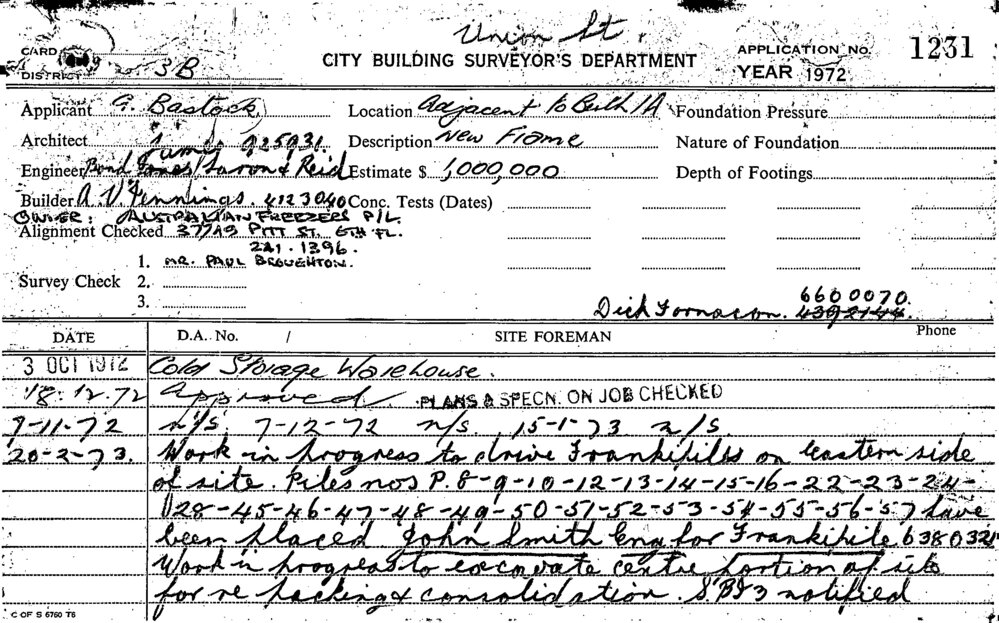 Union St.
CARD
DISTRICT 3B
CITY BUILDING SURVEYOR'S DEPARTMENT
APPLICATION No. 1231
YEAR 1972
Applicant G. Bastock, Location Adjacent to Berth 1A Foundation Pressure
Architect 925931 Description New Frame Nature of Foundation
Engineer Bond James Laron & Reid Estimate $ 1,000,000 Depth of Footings
Builder A.V. Jennings. 4123040 Conc. Tests (Dates)
OWNER: AUSTRALIAN FREEZERS P/L
Alignment Checked 37749 PITT ST. 6TH FL.
241.1396.
1. MR. PAUL BROUGHTON.
Survey Check 2.
3.
6600070.
Dick Fornacon. 4392144.
DATE D.A. No. / SITE FOREMAN Phone
3 OCT 1972 Cold Storage Warehouse.
18.12.72 Approved. PLANS & SPECN. ON JOB CHECKED
9-11-72 n/s. 7-12-72 n/s. 15-1-73 n/s
20-2-73. Work in progress to drive Frankipiles on eastern side
of site. Piles nos P.8-9-10-12-13-14-15-16-22-23-24-
28-45-46-47-48-49-50-51-52-53-54-55-56-57 have
been placed John Smith Eng for Frankipile 6380321
Work in progress to excavate centre portion of site
for re packing & consolidation. notified
C OF S 6750 76